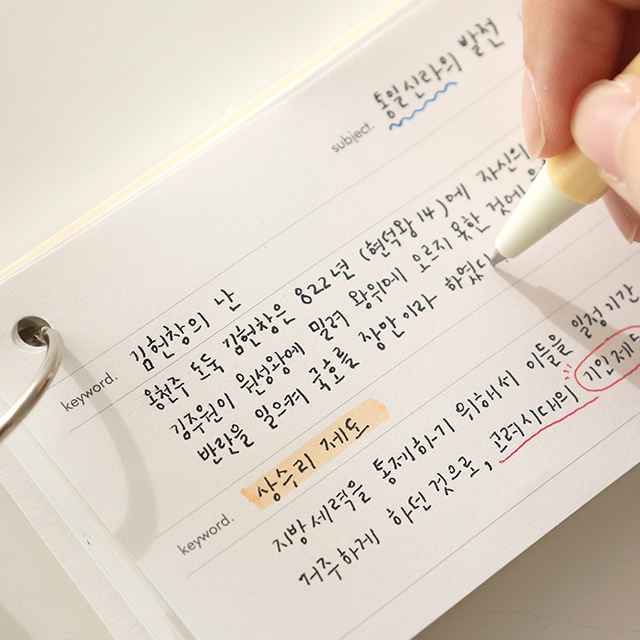 subject. 통일신라의 발전
keyword. 김헌창의 난
웅천주 도독 김헌창은 822년 (헌덕왕 14)에 자신의
김주원이 원성왕에 밀려 왕위에 오르지 못한 것에
반란을 일으켜 국호를 장안이라 하였
keyword. 상수리 제도
지방세력을 통제하기 위해서 이들을 일정기간
거주하게 하던 것으로, 고려시대의 기인제도